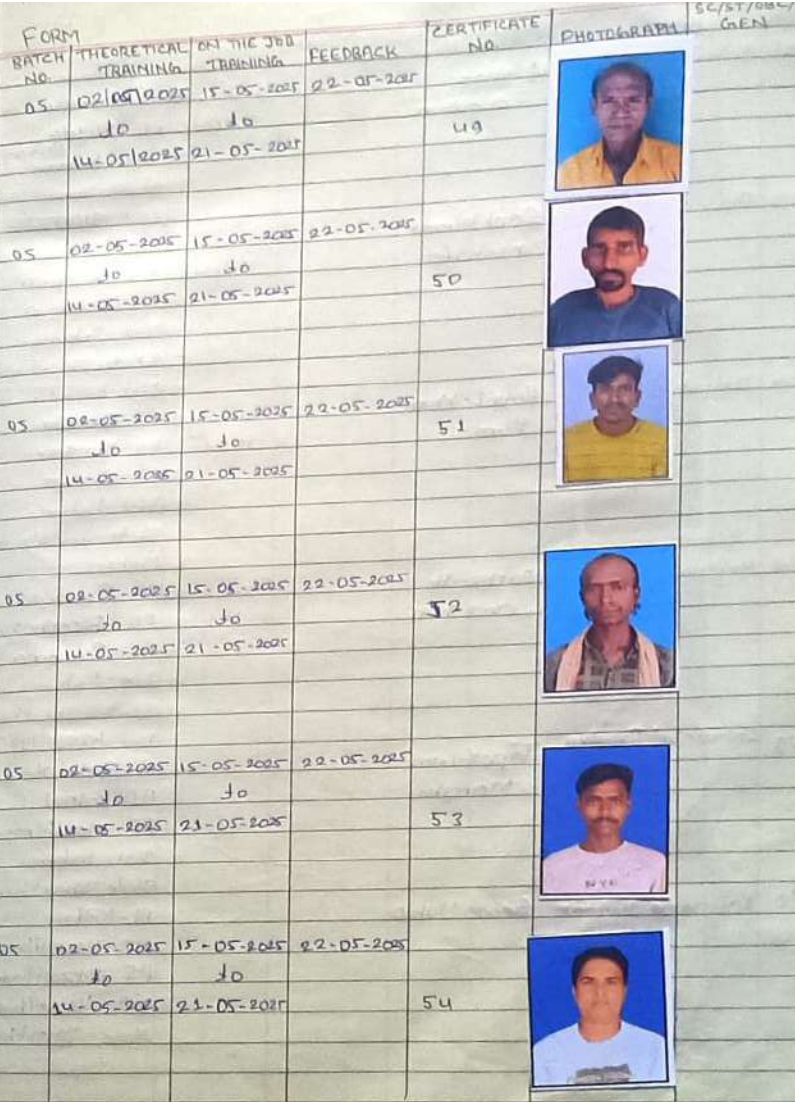 FORM
BATCH NO. THEORETICAL TRAINING ON THE JOB TRAINING FEEDBACK CERTIFICATE NO. PHOTOGRAPH SC/ST/OBC/ GEN
05 02/05/2025 15-05-2025 22-05-2025
to to 49
14-05/2025 21-05-2025
05 02-05-2025 15-05-2025 22-05-2025
to to 50
14-05-2025 21-05-2025
05 02-05-2025 15-05-2025 22-05-2025
to to 51
14-05-2025 21-05-2025
05 02-05-2025 15-05-2025 22-05-2025
to to 52
14-05-2025 21-05-2025
05 02-05-2025 15-05-2025 22-05-2025
to to
14-05-2025 21-05-2025 53
05 02-05-2025 15-05-2025 22-05-2025
to to
14-05-2025 21-05-2025 54